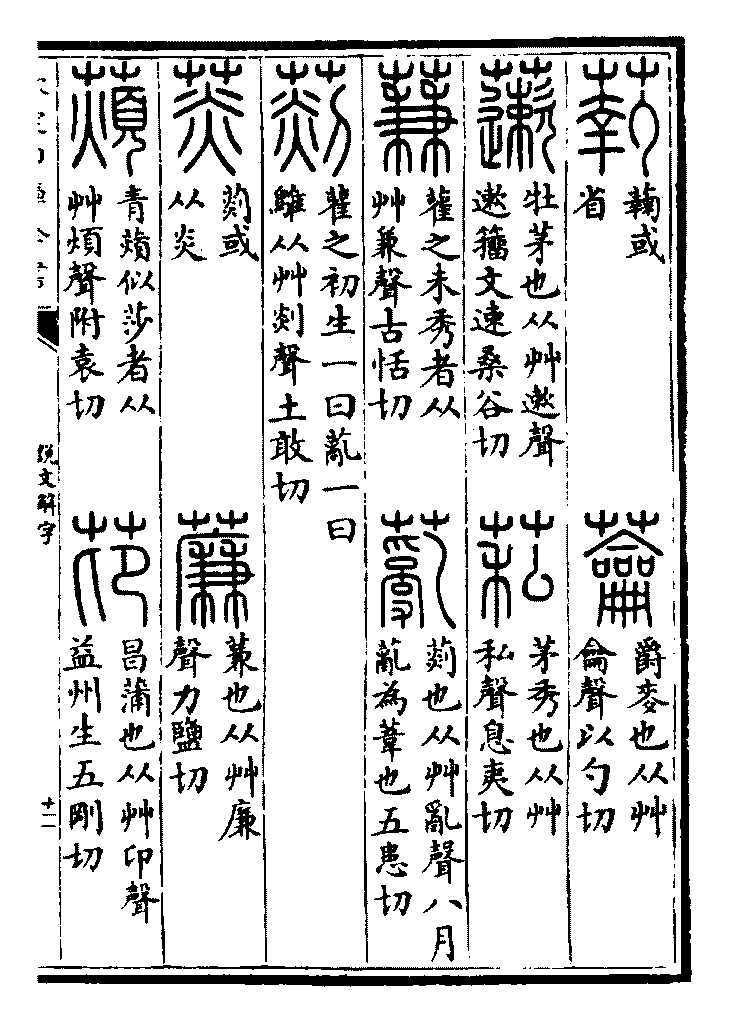 蘜或
省
蘥
爵麥也从艸
龠聲以勺切
藗
牡茅也从艸遬聲
遬籀文速桑谷切
茅秀也从艸
私聲息夷切
蒹
雚之未秀者从
艸兼聲古恬切
薍
𦵹也从艸亂聲八月
薍為葦也五患切
𦵹
雚之初生一曰薍一曰
鵻从艸剡聲土敢切
菼
𦵹或
从炎
薕
蒹也从艸廉
聲力鹽切
薠
青薠似莎者从
艸煩聲附袁切
茚
昌蒲也从艸卬聲
益州生五剛切
説文解字
十二